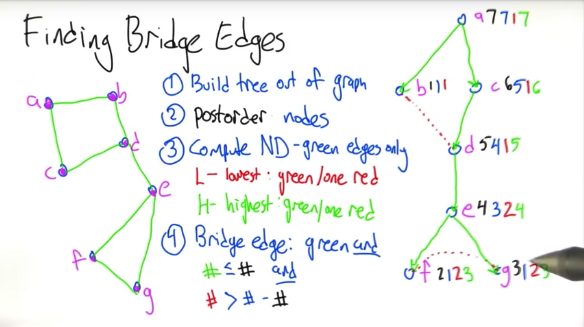 Finding Bridge Edges
① Build tree out of graph
② postorder nodes
③ Compute ND-green edges only
L- lowest: green/one red
H- highest: green/one red
④ Bridge edge: green and
# ≤ # and
# > # - #
a
b
c
d
e
f
g
a7717
b111
c6516
d5415
e4324
f2123
g3123